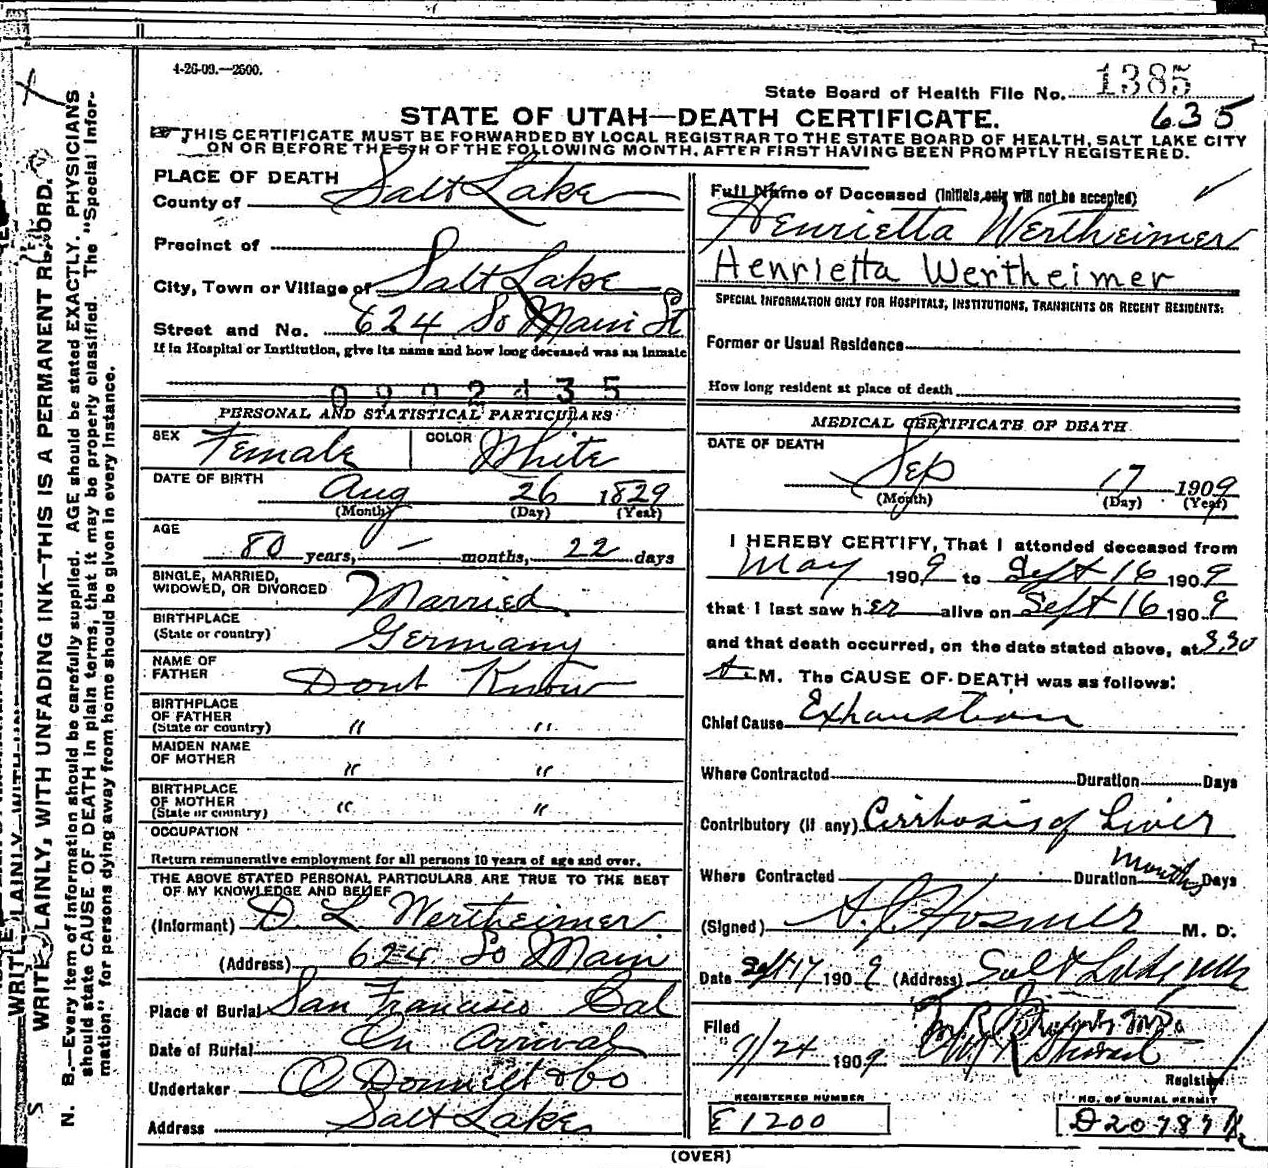 4-26-09.—2500.
State Board of Health File No. 1385
635
STATE OF UTAH—DEATH CERTIFICATE.
THIS CERTIFICATE MUST BE FORWARDED BY LOCAL REGISTRAR TO THE STATE BOARD OF HEALTH, SALT LAKE CITY
ON OR BEFORE THE 5TH OF THE FOLLOWING MONTH, AFTER FIRST HAVING BEEN PROMPTLY REGISTERED.
PLACE OF DEATH
County of Salt Lake
Precinct of
City, Town or Village of Salt Lake
Street and No. 624 So Main St
If in Hospital or Institution, give its name and how long deceased was an inmate
0902435
PERSONAL AND STATISTICAL PARTICULARS
SEX Female COLOR White
DATE OF BIRTH
Aug 26 1829
(Month) (Day) (Year)
AGE
80 years, — months, 22 days
SINGLE, MARRIED,
WIDOWED, OR DIVORCED Married
BIRTHPLACE
(State or country) Germany
NAME OF
FATHER Dont Know
BIRTHPLACE
OF FATHER
(State or country) " "
MAIDEN NAME
OF MOTHER " "
BIRTHPLACE
OF MOTHER
(State or country) " "
OCCUPATION
Return remunerative employment for all persons 10 years of age and over.
THE ABOVE STATED PERSONAL PARTICULARS ARE TRUE TO THE BEST
OF MY KNOWLEDGE AND BELIEF
(Informant) D. L Wertheimer
(Address) 624 So Main
Place of Burial San Francisco Cal
Date of Burial On Arrival
Undertaker O Donnell & Co
Address Salt Lake
Full Name of Deceased (Initials only will not be accepted)
Henrietta Wertheimer
Henrietta Wertheimer
SPECIAL INFORMATION ONLY FOR HOSPITALS, INSTITUTIONS, TRANSIENTS OR RECENT RESIDENTS:
Former or Usual Residence
How long resident at place of death
MEDICAL CERTIFICATE OF DEATH
DATE OF DEATH
Sep 17 1909
(Month) (Day) (Year)
I HEREBY CERTIFY, That I attended deceased from
May 1909 to Sept 16 1909
that I last saw her alive on Sept 16 1909
and that death occurred, on the date stated above, at 3.30
M. The CAUSE OF DEATH was as follows:
Chief Cause Exhaustion
Where Contracted Duration Days
Contributory (if any) Cirrhosis of Liver
Where Contracted Duration Months Days
(Signed) Hosmer M. D.
Date Sept 17 1909 (Address) Salt Lake
Filed
9/24 1909 Registrar
REGISTERED NUMBER
E1200
NO. OF BURIAL PERMIT
D20787
(OVER)
WRITE PLAINLY, WITH UNFADING INK—THIS IS A PERMANENT RECORD.
N. B.—Every item of information should be carefully supplied. AGE should be stated EXACTLY. PHYSICIANS
should state CAUSE OF DEATH in plain terms, that it may be properly classified. The "Special Infor-
mation" for persons dying away from home should be given in every instance.